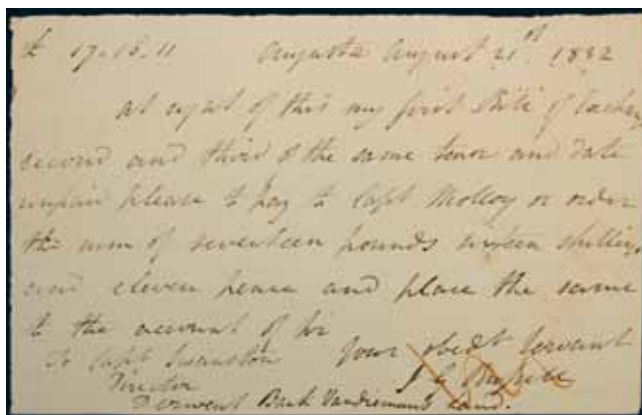 £ 17.16.11 Augusta August 21st 1832
At sight of this my first Bill of Exchange
second and third of the same tenor and date
unpaid please to pay to Capt Molloy or order
the sum of seventeen pounds sixteen shillings
and eleven pence and place the same
to the account of
Your obedt Servant
To Capt Swanston
Director
Derwent Bank Vandiemans Land